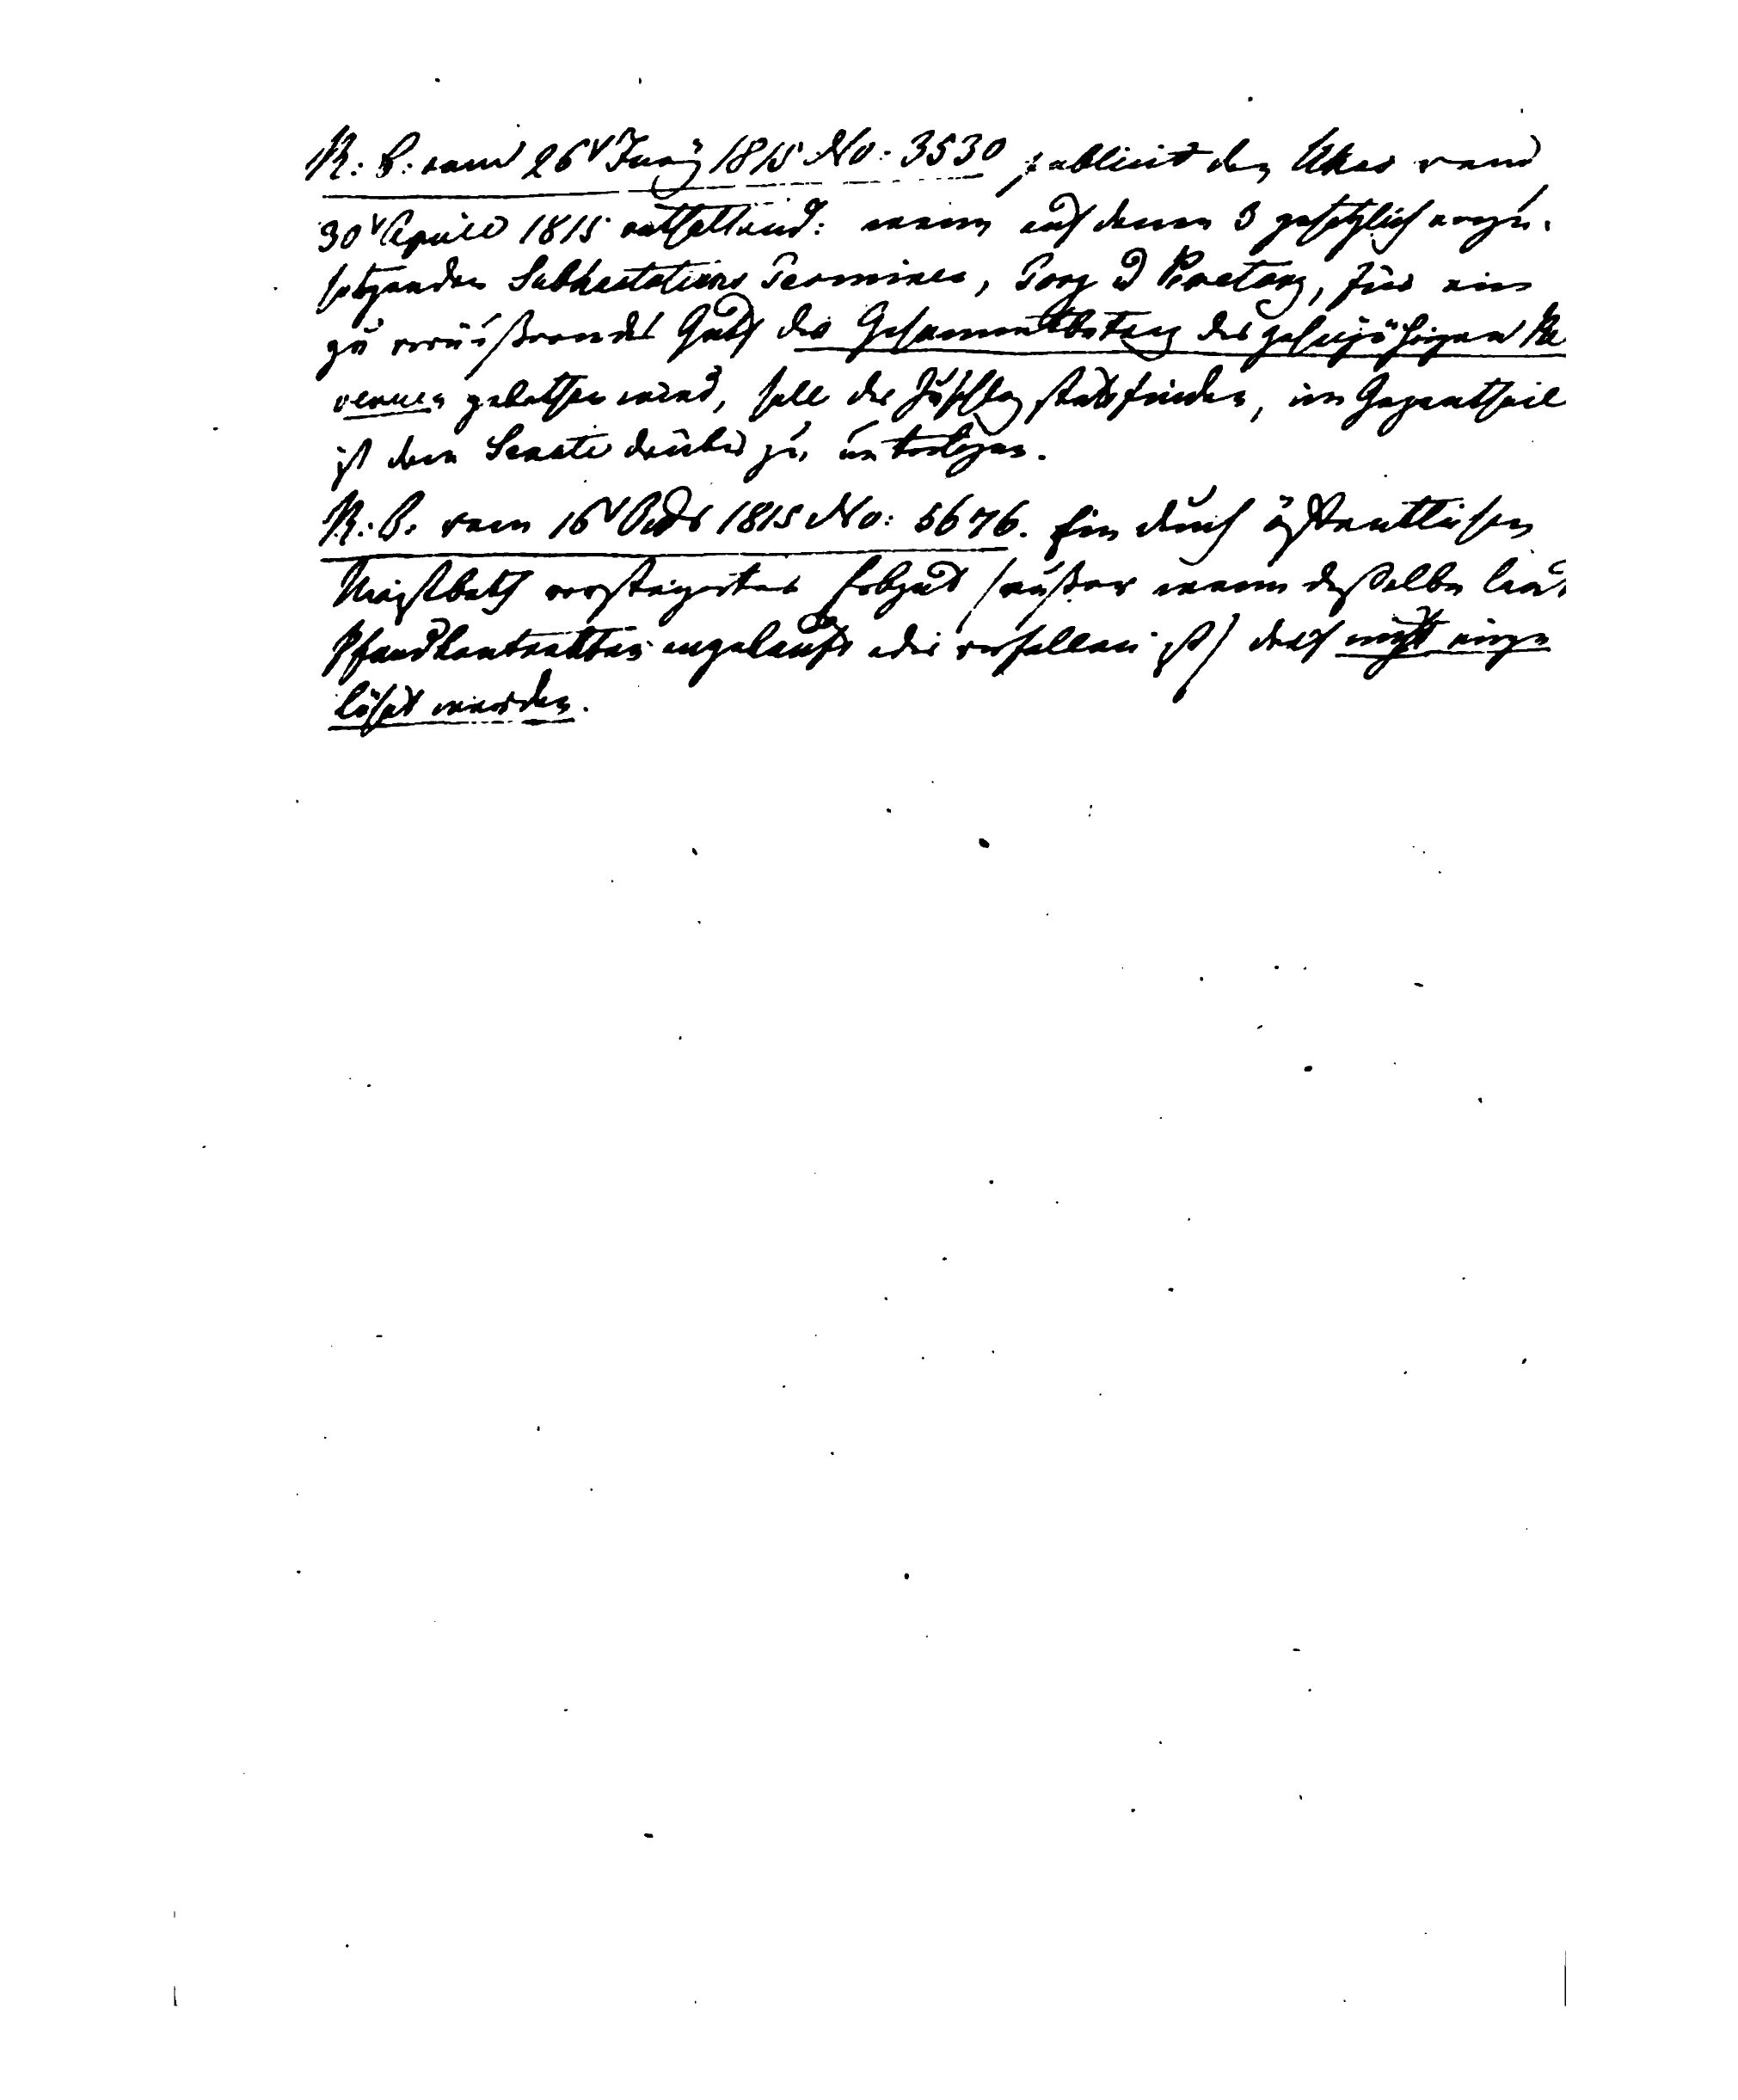 R: B. vom 26ᵗ Juny 1815 No: 3530 publicirt den Ukas vom
30ᵗ April 1815 enthaltend: wenn auf denen 3 gesetzlich anzu-
setzenden Subhastations Termines, Torg u Peretorg, für ein
zu veräußerndes Guth der Gesammtbetrag der zehnjährigen Re
venuen gebothen wird, soll der Zuschlag stattfinden, im Gegentheil
ist dem Senate drüber zu unterlegen.
R: B. vom 16ᵗ Octbr 1815 No: 5676. Ein durch öffentlichen
Meistboth versteigertes Erbgut (außer wenn dasselbe laut
Pfandkontraktes angekauft oder verfallen ist) darf nicht einge
löset werden.